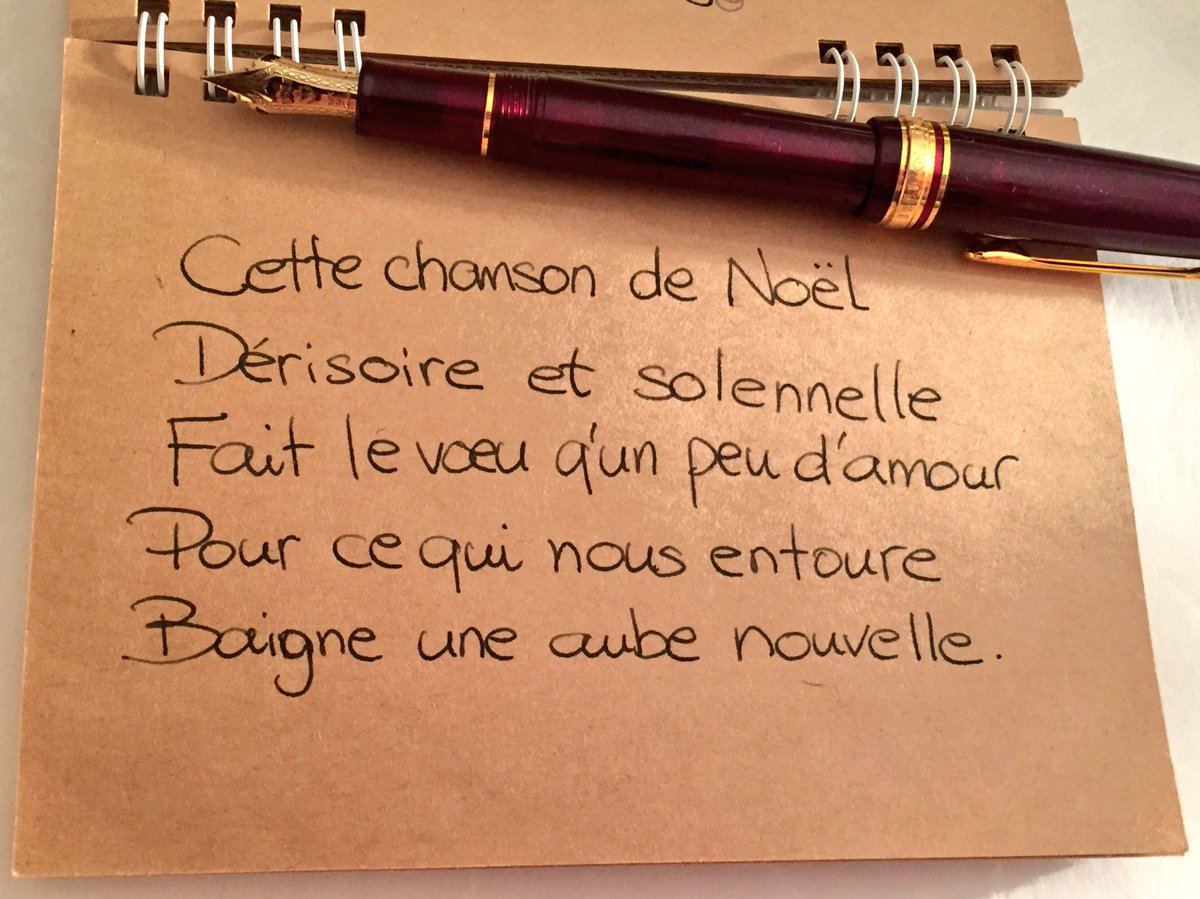 Cette chanson de Noël
Dérisoire et solennelle
Fait le vœu q'un peu d'amour
Pour ce qui nous entoure
Baigne une aube nouvelle.